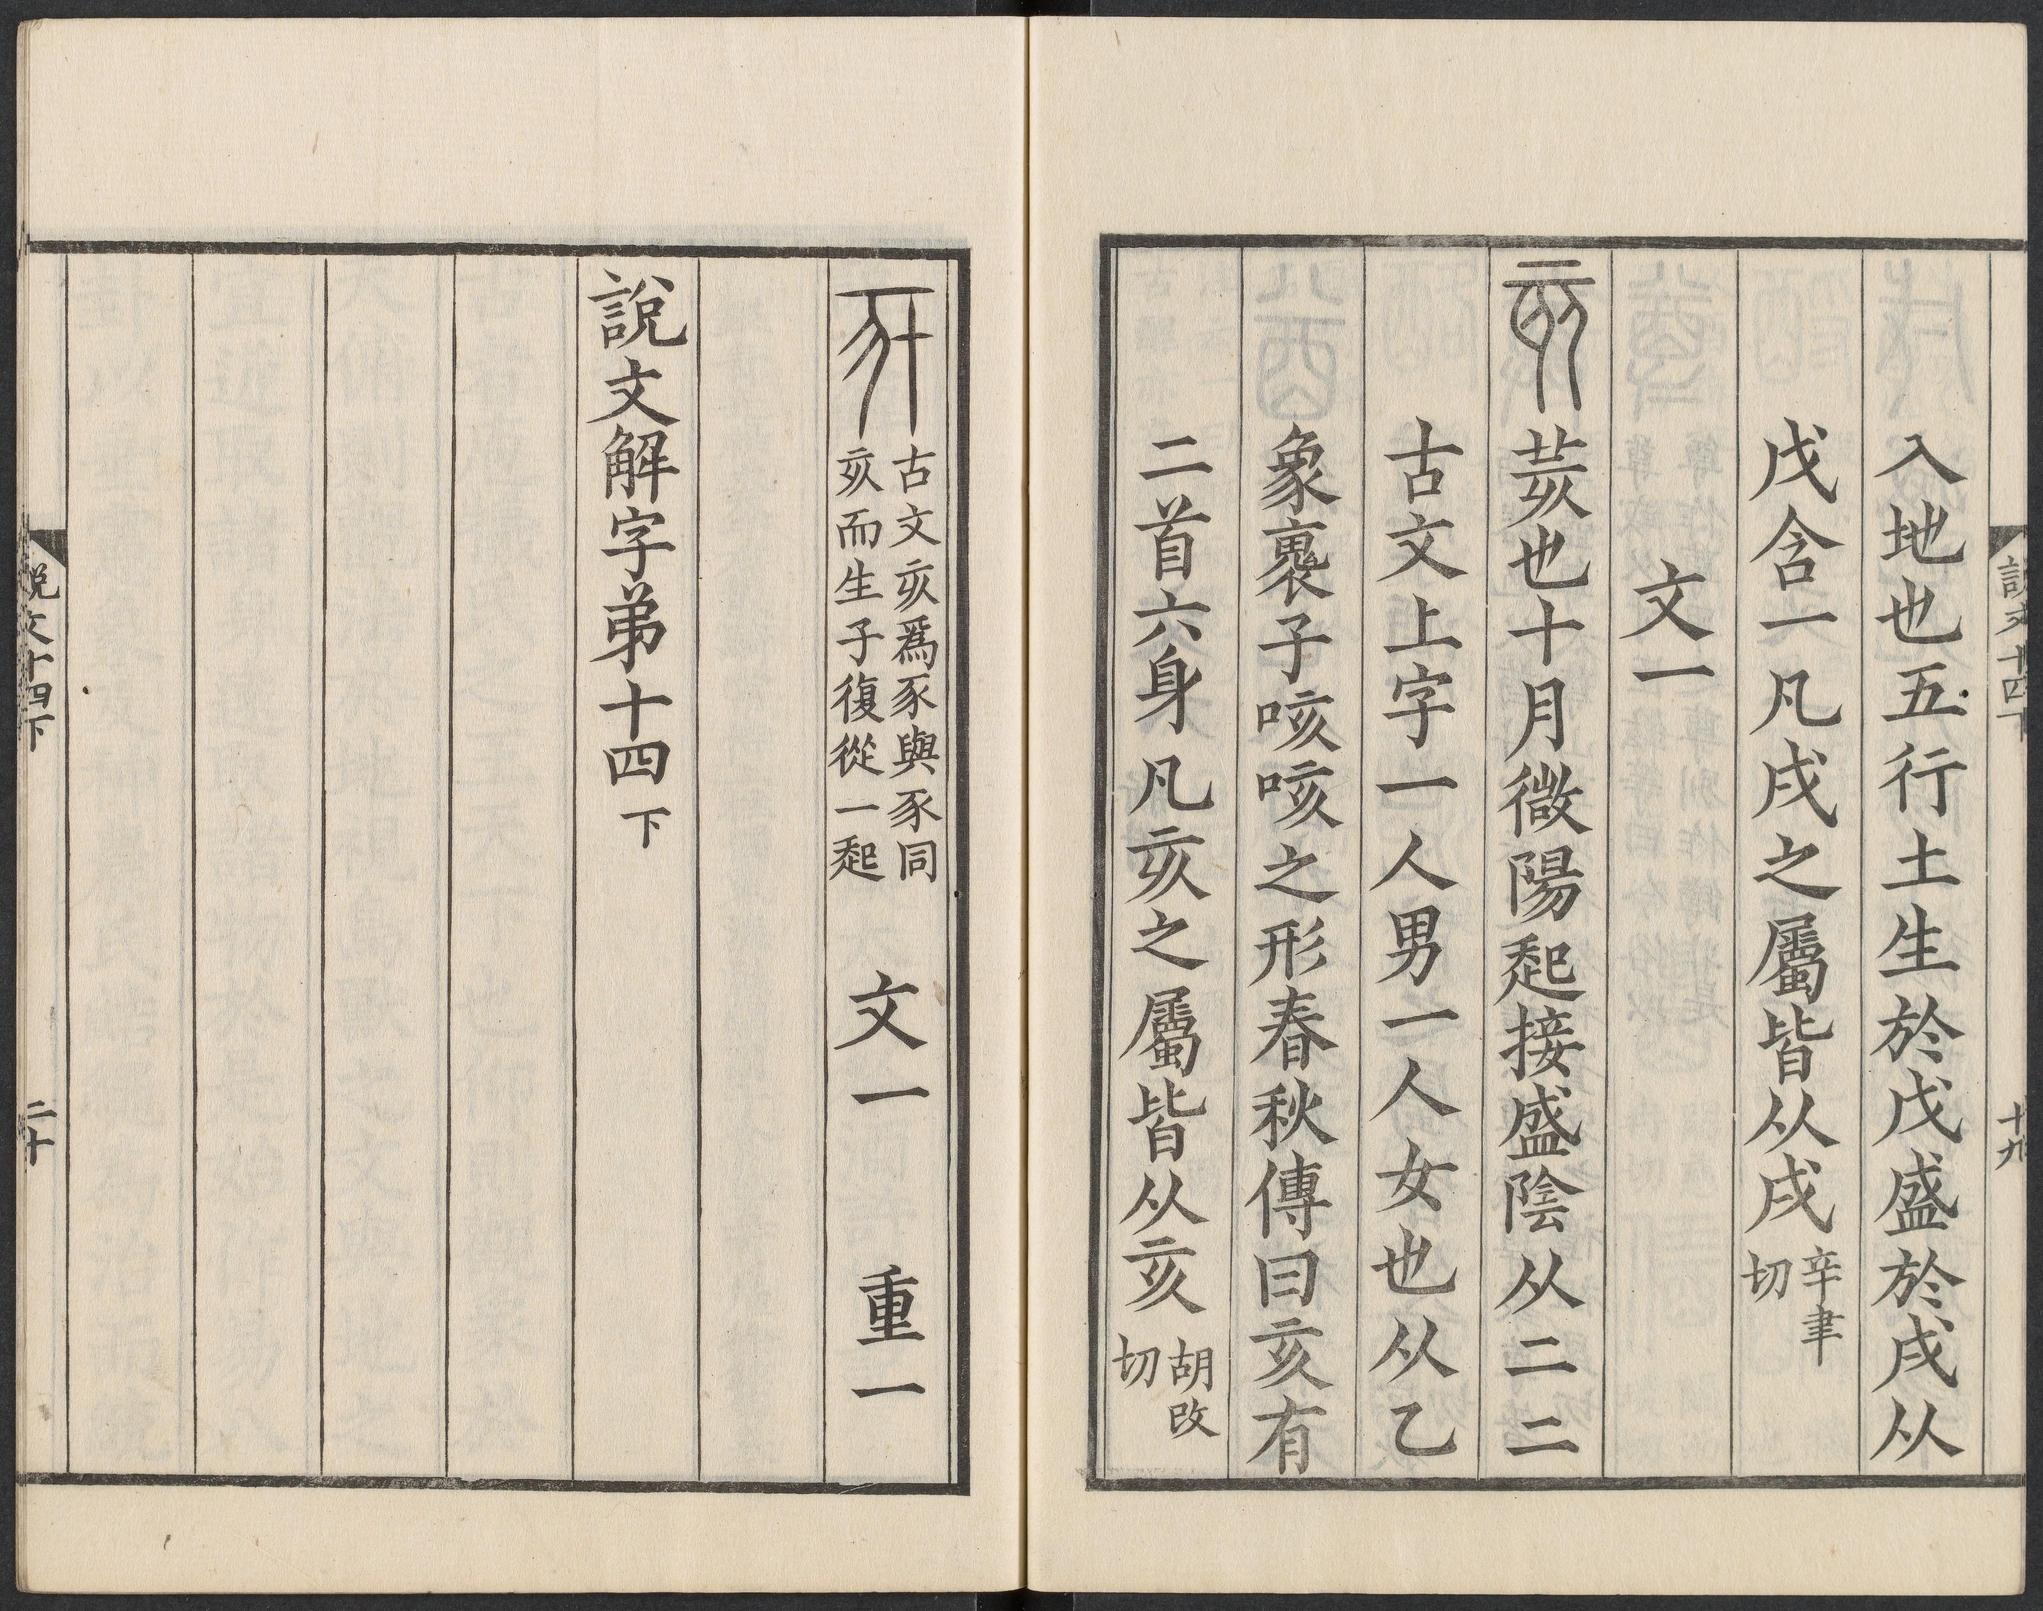 說文十四下 十九
入地也五行土生於戊盛於戌从
戊含一凡戌之屬皆从戌辛聿切
文一
亥 荄也十月微陽起接盛陰从二二
古文上字一人男一人女也从乙
象褢子咳咳之形春秋傳曰亥有
二首六身凡亥之屬皆从亥胡改切
古文亥爲豕與豕同
亥而生子復從一起
文一 重一
說文解字弟十四下
說文十四下 二十